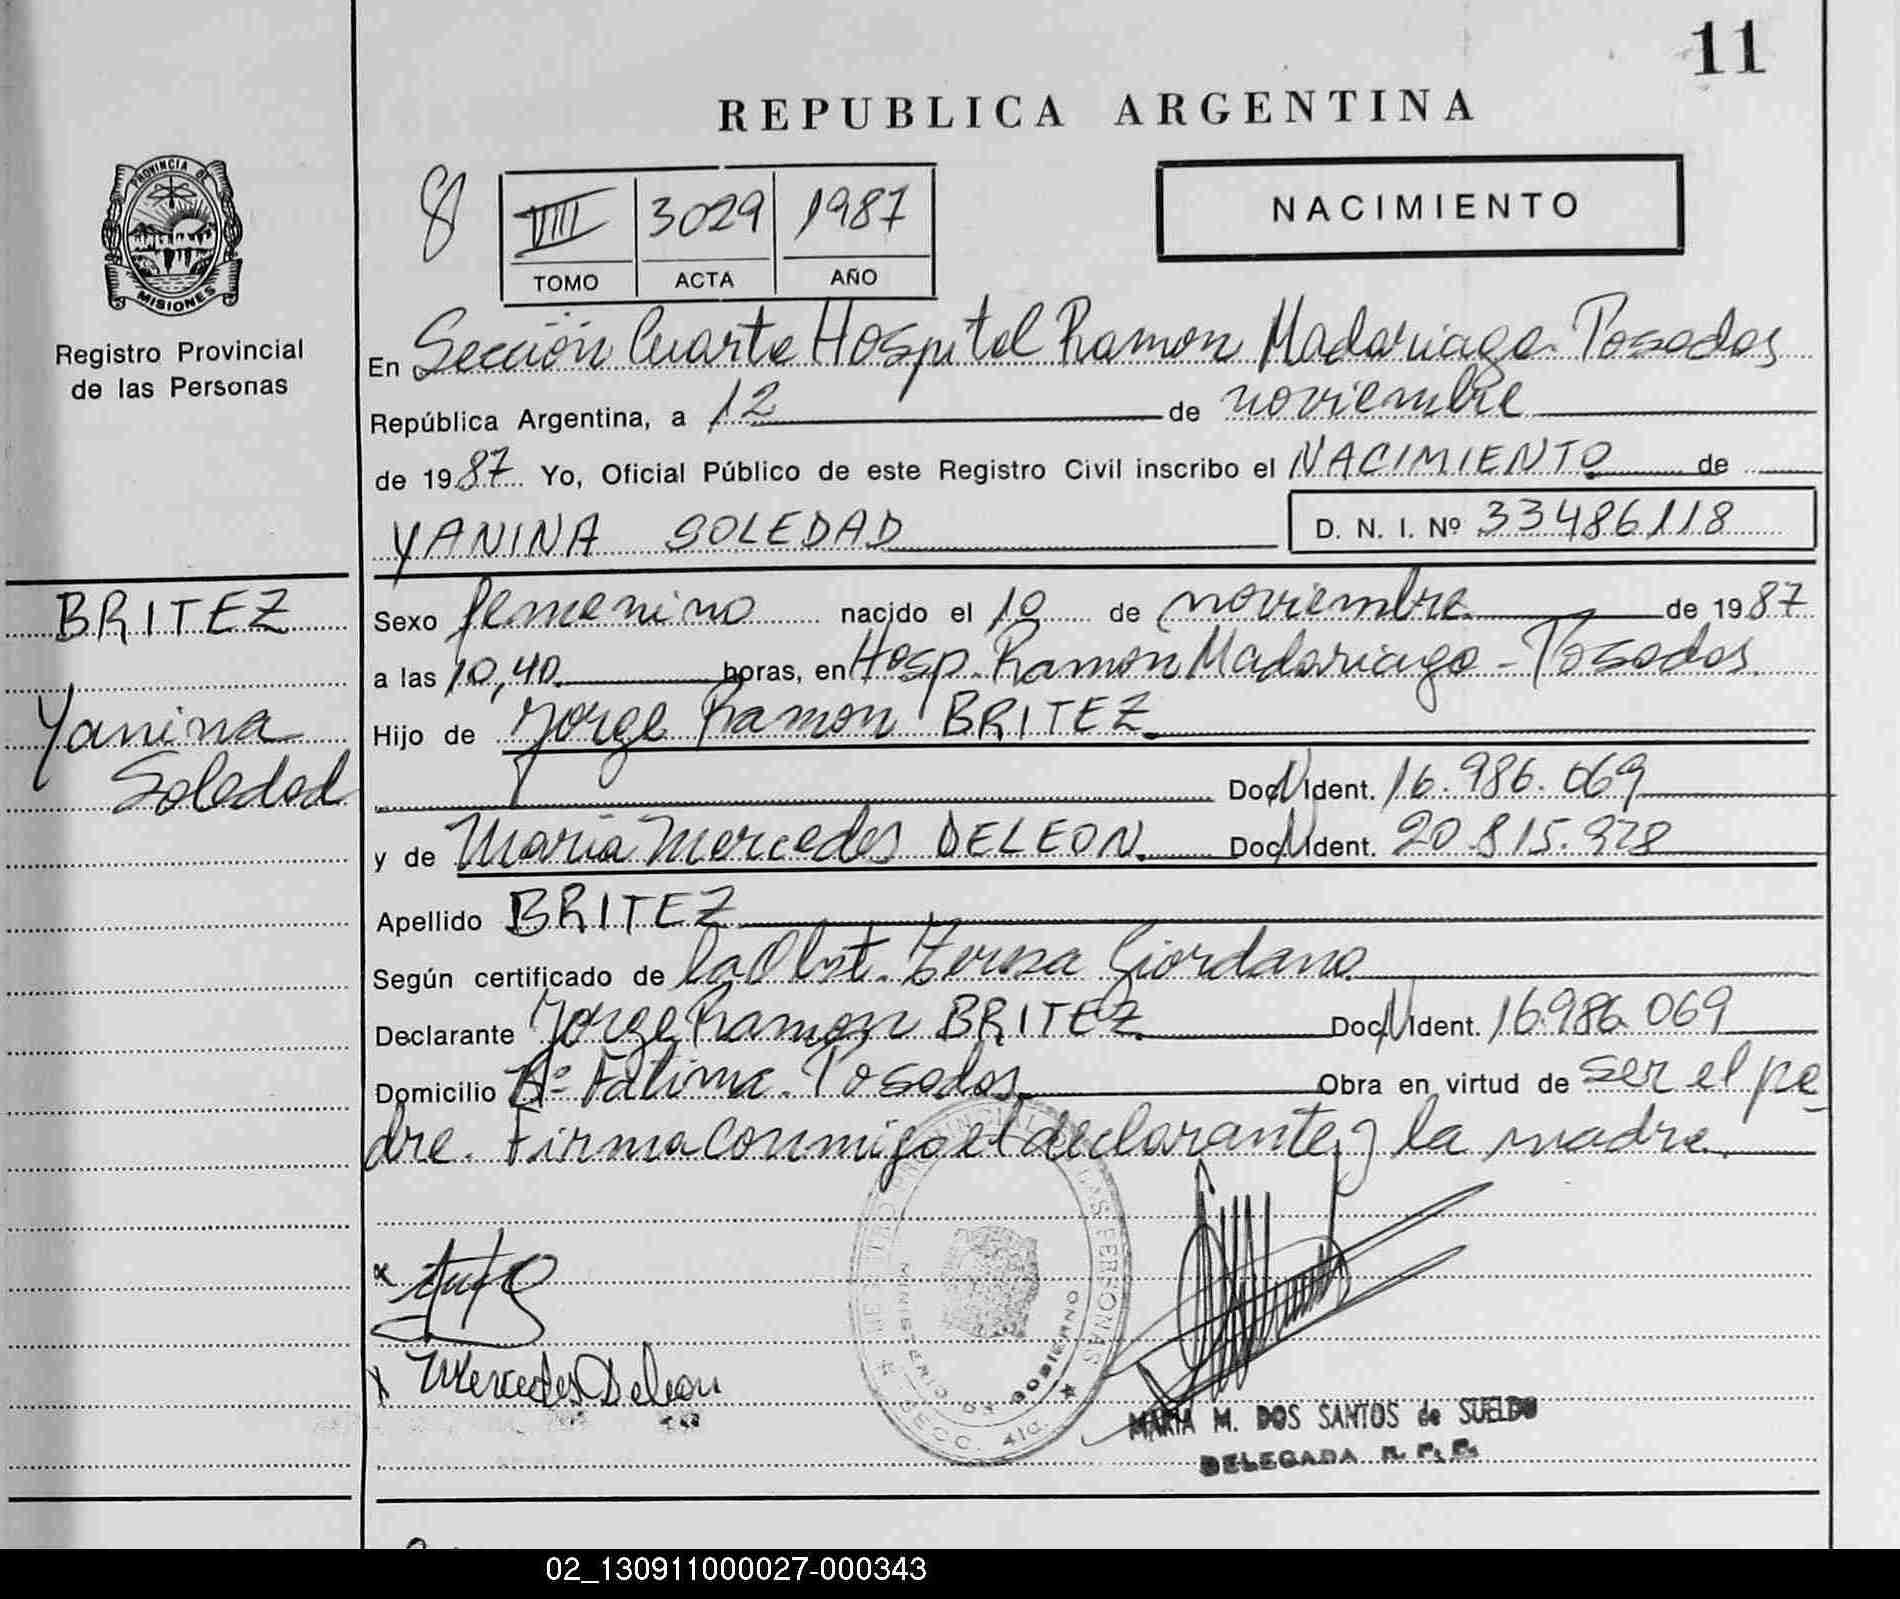 11
REPUBLICA ARGENTINA
PROVINCIA DE
MISIONES
Registro Provincial
de las Personas
8
VIII 3029 1987
TOMO ACTA AÑO
NACIMIENTO
En Sección Cuarta Hospital Ramon Madariaga. Posadas
República Argentina, a 12 de noviembre
de 1987 Yo, Oficial Público de este Registro Civil inscribo el NACIMIENTO de
YANINA SOLEDAD D. N. I. Nº 33486118
BRITEZ
Yanina
Soledad
Sexo femenino nacido el 10 de noviembre de 1987
a las 10,40 horas, en Hosp. Ramón Madariaga - Posadas
Hijo de Jorge Ramon BRITEZ
Doc N Ident. 16.986.069
y de Maria Mercedes DELEON Doc N Ident. 20.815.978
Apellido BRITEZ
Según certificado de la Obst. Teresa Giordano
Declarante Jorge Ramon BRITEZ Doc N Ident. 16986.069
Domicilio Bº Fatima. Posadas Obra en virtud de ser el pa-
dre. Firma conmigo el declarante y la madre.
x
x Mercedes Deleon
PROVINCIAL DE LAS PERSONAS
MINISTERIO DE GOBIERNO
SECC. 4ta.
MARIA M. DOS SANTOS de SUELDO
DELEGADA R. P. P.
02_130911000027-000343